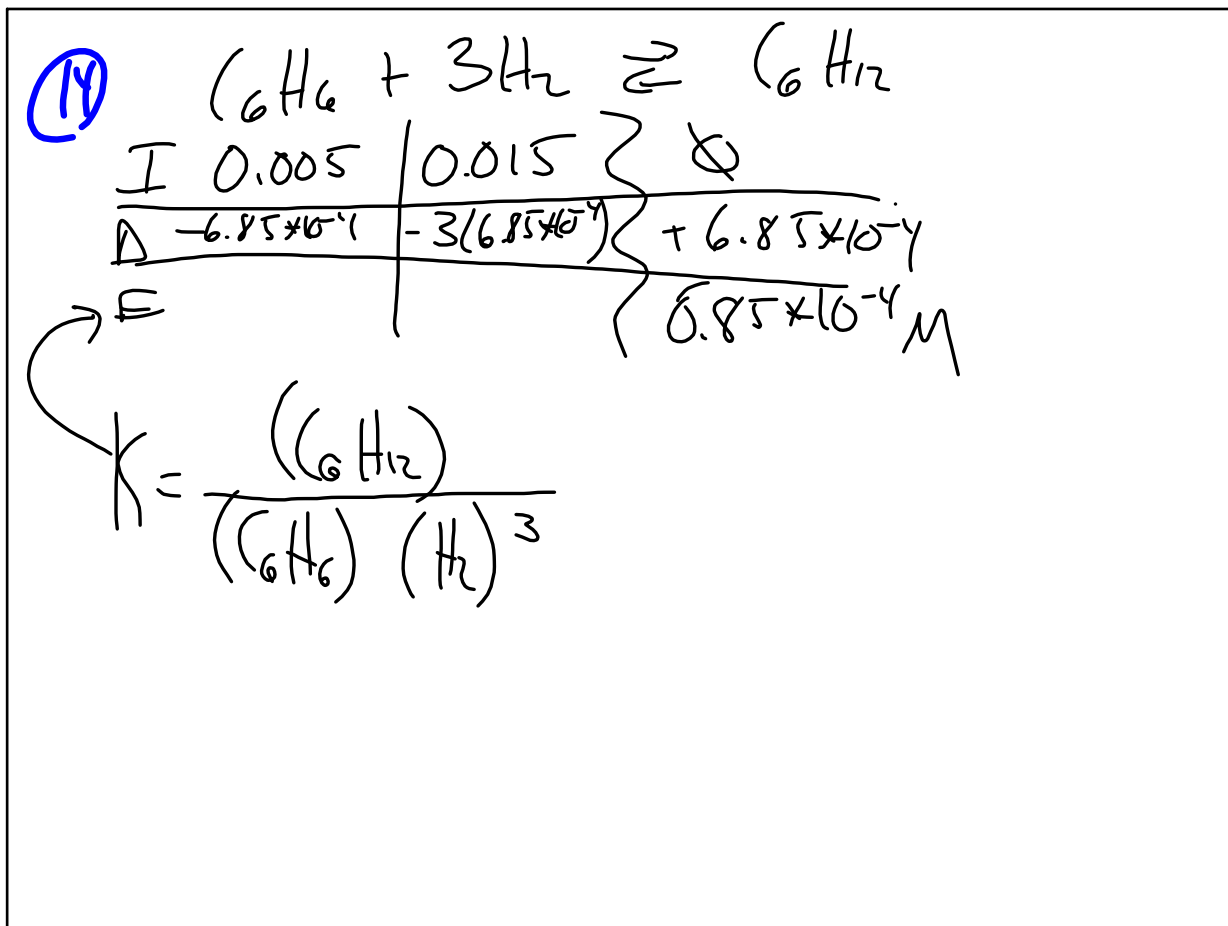 14 C₆H₆ + 3H₂ ⇄ C₆H₁₂
I 0.005 0.015 Ø
Δ -6.85*10⁻⁴ - 3(6.85*10⁻⁴) + 6.85*10⁻⁴
E 6.85*10⁻⁴ M
K = (C₆H₁₂)
(C₆H₆) (H₂)³